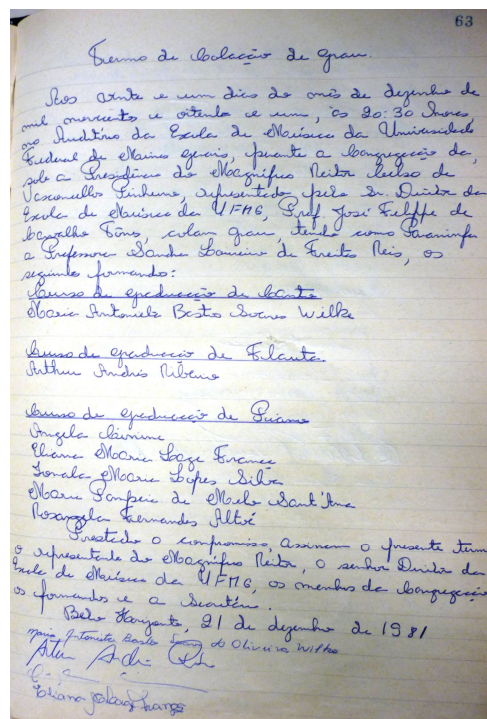 63
Termo de Colação de grau.
Aos vinte e um dias do mês de dezembro de
mil novecentos e oitenta e um, às 20:30 horas,
no Auditório da Escola de Música da Universidade
Federal de Minas Gerais, perante a Congregação da,
sob a Presidência do Magnífico Reitor Celso de
Vasconcellos Pinheiro, representado pelo Sr. Diretor da
Escola de Música da UFMG, Prof. José Felippe de
Carvalho Tôrres, colam grau, tendo como Paraninfa
a Professora Sandra Loureiro de Freitas Reis, os
seguintes formandos:
Curso de graduação de Canto
Maria Antonieta Bastos Soares Wilke
Curso de graduação de Flauta.
Arthur Andrés Ribeiro
Curso de graduação de Piano
Angela
Eliana Maria Lage França
Maria Lopes Silva
Maria Pompeia de Melo Sant'Ana
Rosangela Fernandes
Prestado o compromisso, assinam o presente termo
o representado do Magnífico Reitor, o senhor Diretor da
Escola de Música da UFMG, os membros da Congregação
os formandos e a Secretária.
Belo Horizonte, 21 de dezembro de 1981
Maria Antonieta Bastos de Oliveira Wilke